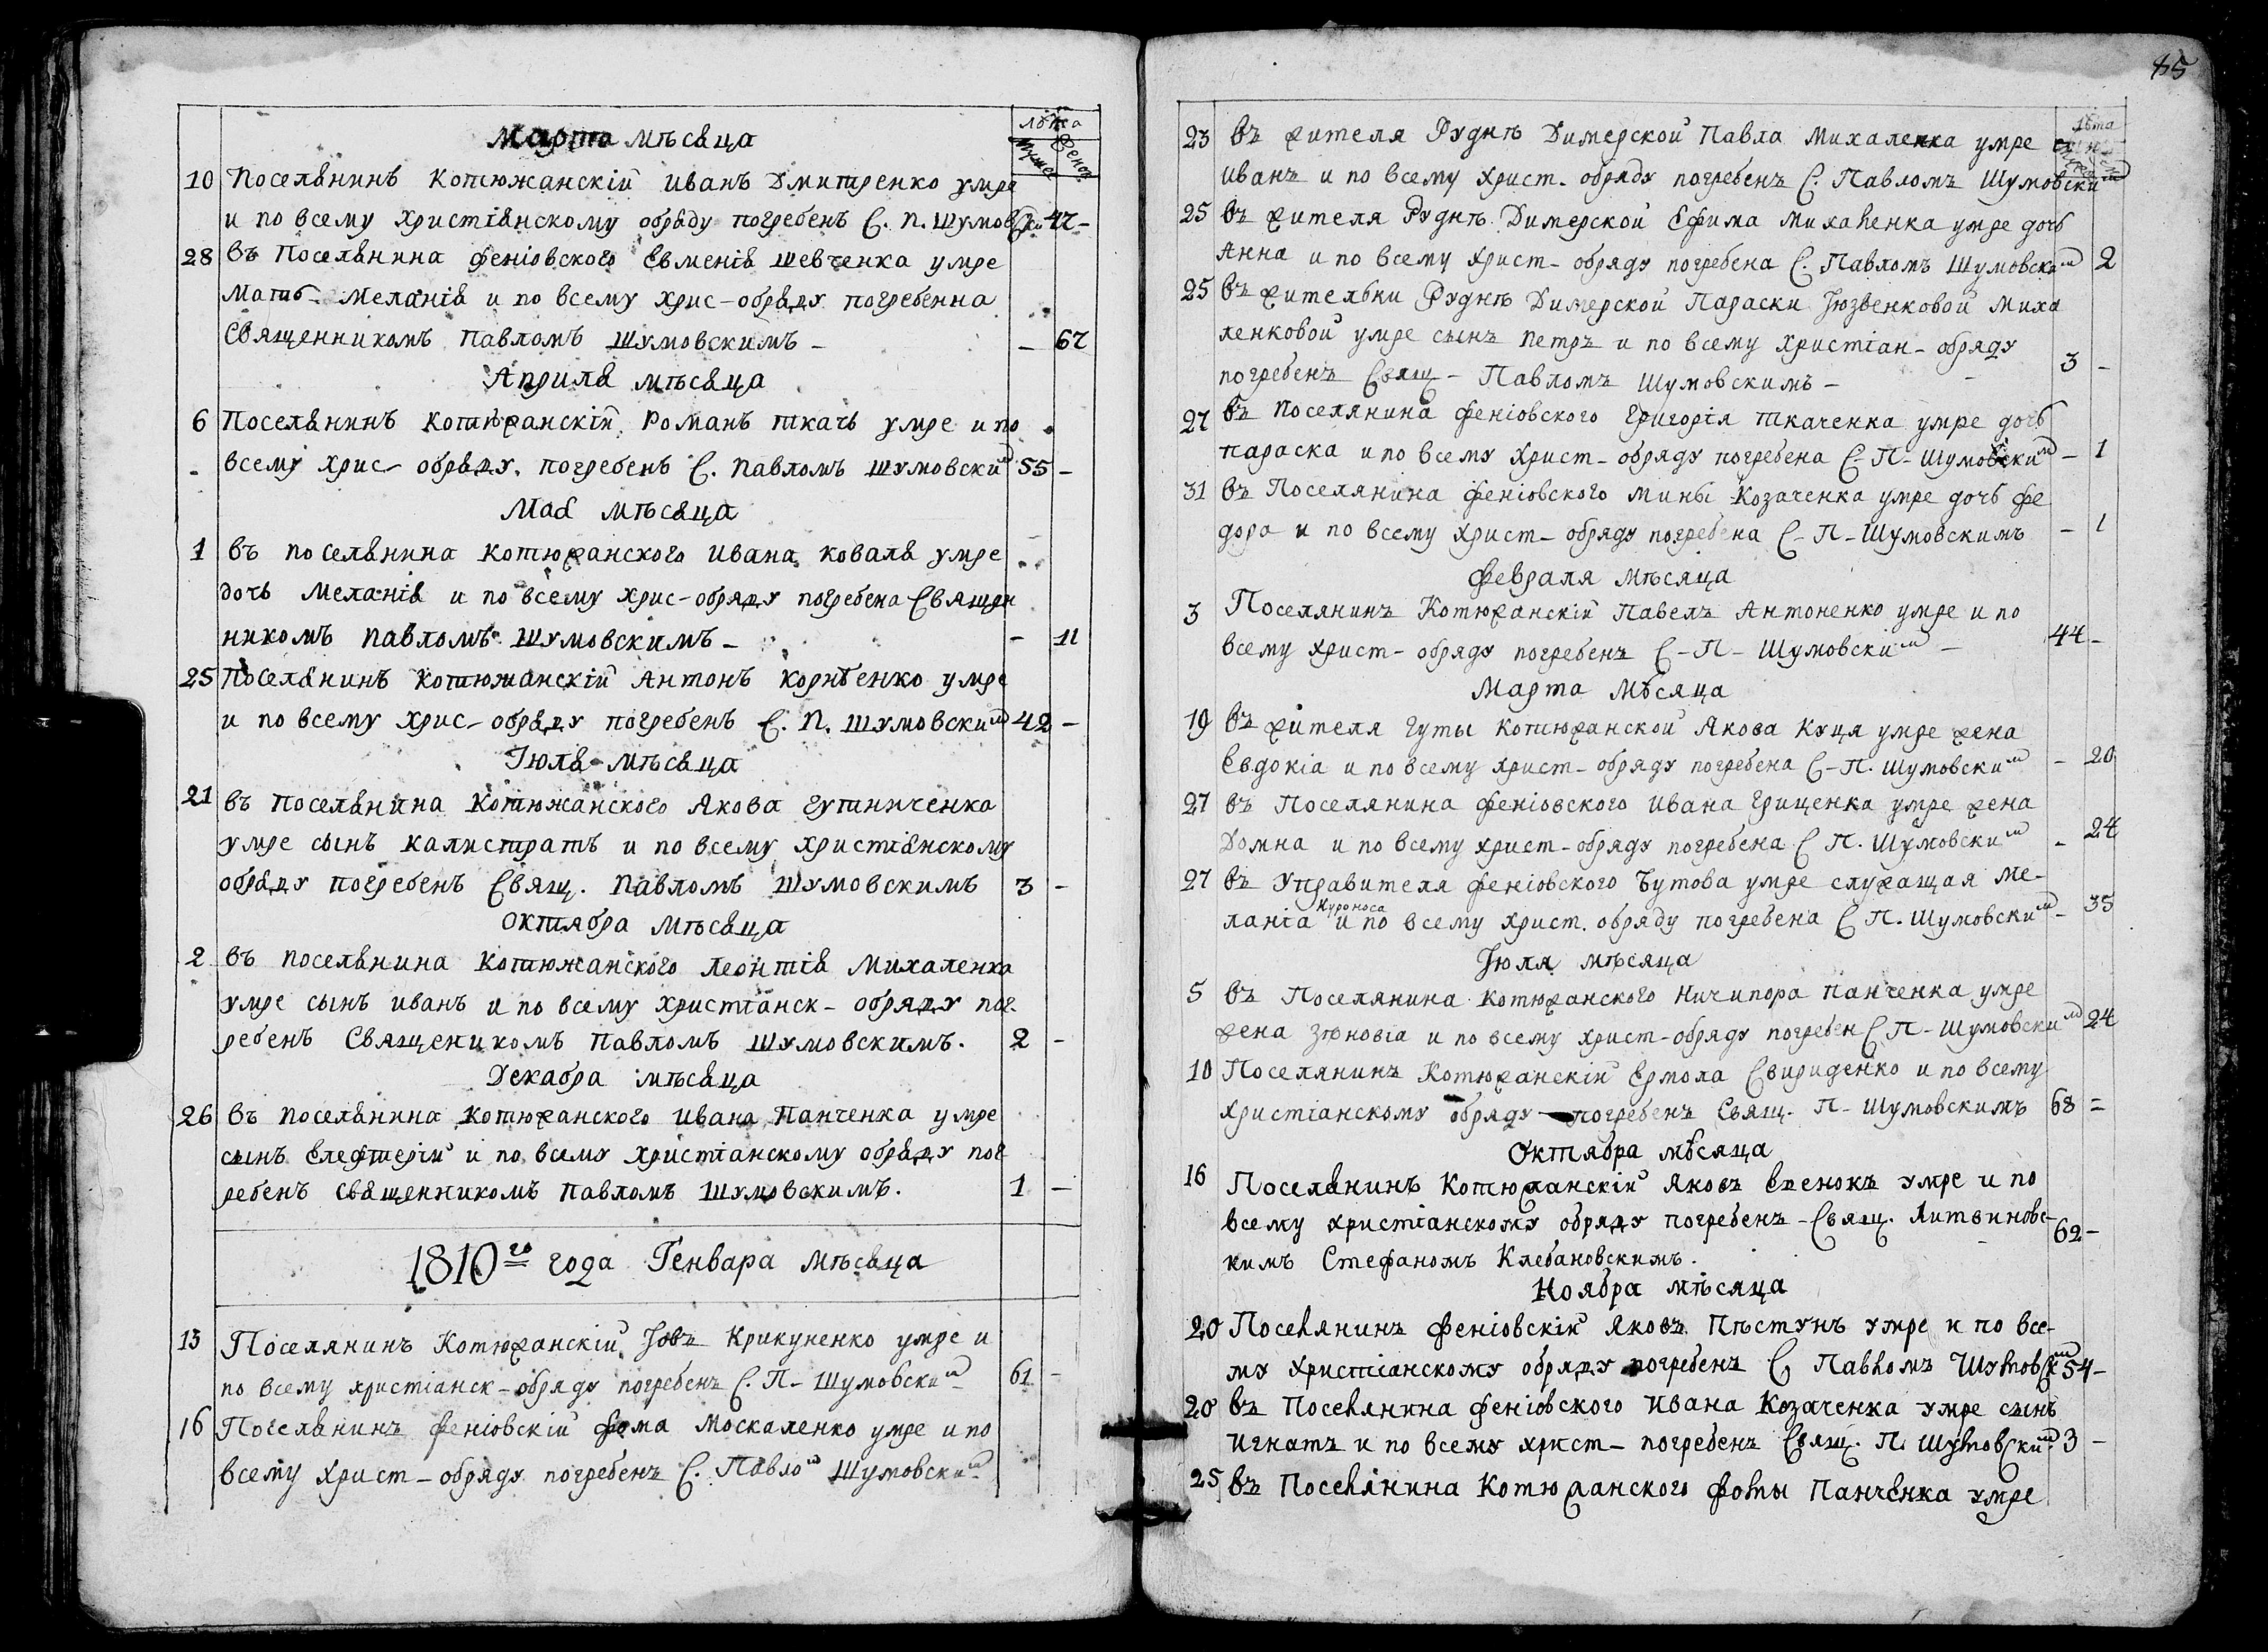 лѣта
Марта мѣсяца
Мужес Женск
10 Поселянинъ Котюжанскій Иванъ Дмитренко умре
и по всему христіянскому обряду погребенъ С. П. Шумовски 47 -
28 Въ Поселянина Феніовского Евменія Шевченка умре
Мать Меланія и по всему хрис - обряду погребенна
Священникомъ Павломъ Шумовскимъ - - 67
Априля мѣсяца
6 Поселянинъ Котюжанскій Романъ Ткачъ умре и по
всему хрис - обряду погребенъ С. Павломъ Шумовским 55 -
Мая мѣсяца
1 въ поселянина Котюжанского Ивана Коваля умре
дочь Меланія и по всему хрис - обряду погребена Священ
никомъ Павломъ Шумовскимъ - - 11
25 Поселянинъ Котюжанскій Антонъ Корнѣенко умре
и по всему хрис - обряду погребенъ С. П. Шумовским 42 -
Іюля мѣсяца
21 въ поселянина Котюжанского Якова Гутниченка
умре сынъ Калистратъ и по всему христіянскому
обряду погребенъ Свящ. Павломъ Шумовскимъ 3 -
Октября мѣсяца
2 въ поселянина Котюжанского Леонтія Михаленка
умре сынъ Иванъ и по всему христіанск - обряду пог-
ребенъ Священикомъ Павломъ Шумовскимъ. 2 -
Декабра мѣсяца
26 въ поселянина Котюжанского Ивана Панченка умре
сынъ Елефтерій и по всему христіанскому обряду пог
ребенъ Священникомъ Павломъ Шумовскимъ. 1 -
1810го года Генвара мѣсяца
13 Поселянинъ Котюжанскій Іовъ Крикуненко умре и
по всему христіанск - обряду погребенъ С. П - Шумовским 61 -
16 Поселянинъ Феніовскій Фома Москаленко умре и по
всему христ - обряду погребенъ С. Павлом Шумовским
85
лѣта
23 Въ жителя Руднѣ Димерской Павла Михаленка умре сын
Иванъ и по всему христ. обряду погребенъ С. Павломъ Шумовским
25 Въ жителя Руднѣ Димерской Ефима Михаленка умре дочь
Анна и по всему христ - обряду погребена С. Павломъ Шумовским 2
25 Въ жителки Руднѣ Димерской Параски Іюзвенковой Миха
ленковой умре сынъ Петръ и по всему христіан - обряду
погребенъ Свящ - Павломъ Шумовскимъ - 3 -
27 Въ Поселянина Феніовского Григорія Ткаченка умре дочь
Параска и по всему христ - обряду погребена С - П - Шумовским - 1
31 Въ Поселянина Феніовского Мины Козаченка умре дочь Фе
дора и по всему христ - обряду погребена С - П - Шумовскимъ - 1
Февраля мѣсяца
3 Поселянинъ Котюжанскій Павелъ Антоненко умре и по
всему христ - обряду погребенъ С - П - Шумовским - 44 -
Марта мѣсяца
19 Въ жителя Гуты Котюжанской Якова Куця умре жена
Евдокіа и по всему христ - обряду погребена С - П. Шумовским - 20
27 Въ Поселянина Феніовского Ивана Гриценка умре жена
Домна и по всему христ - обряду погребена С П. Шумовским - 24
27 Въ Управителя Феніовского Бутова умре служащая Ме-
Куроноса
ланіа и по всему христ. обряду погребена С П. Шумовским - 35
Іюля мѣсяца
5 Въ Поселянина Котюжанского Ничипора Панченка умре
жена Зѣновіа и по всему христ - обряду погребен С П - Шумовским 24
10 Поселянинъ Котюжанскій Ермола Свириденко и по всему
христіанскому обряду погребенъ Свящ - П - Шумовскимъ 68 =
Октября мѣсяца
16 Поселянинъ Котюжанскій Яковъ умре и по
всему христіанскому обряду погребенъ - Свящ. Литвиновс-
кимъ Стефаномъ Клебановскимъ. 62 -
Ноября мѣсяца
20 Поселянинъ Феніовскій Яковъ Пѣстунъ умре и по все-
му христіанскому обряду погребенъ С. Павломъ Шумовским 54 -
20 Въ Поселянина Феніовского Ивана Козаченка умре сынъ
Игнатъ и по всему христ - погребенъ Свящ. П. Шумовским 3 -
25 Въ Поселянина Котюжанского Фомы Панченка умре